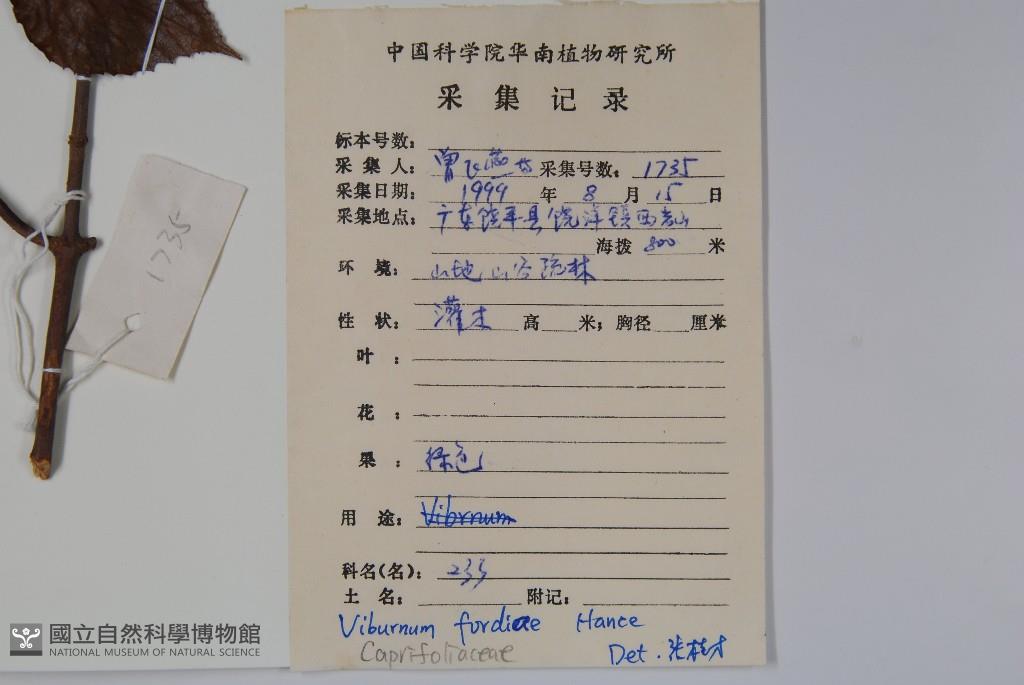 中国科学院华南植物研究所
采集记录
标本号数：
采集人：曾飞燕 采集号数：1735
采集日期：1999 年 8 月 15 日
采集地点：广东饶平县饶洋镇西岩山
海拨 800 米
环境：山地山谷疏林
性状：灌木 高 米；胸径 厘米
叶：
花：
果：绿色
用途：Viburnum
科名(名)：233
土名： 附记：
Viburnum fordiae Hance
Caprifoliaceae
Det. 张桂才
1735
國立自然科學博物館
NATIONAL MUSEUM OF NATURAL SCIENCE